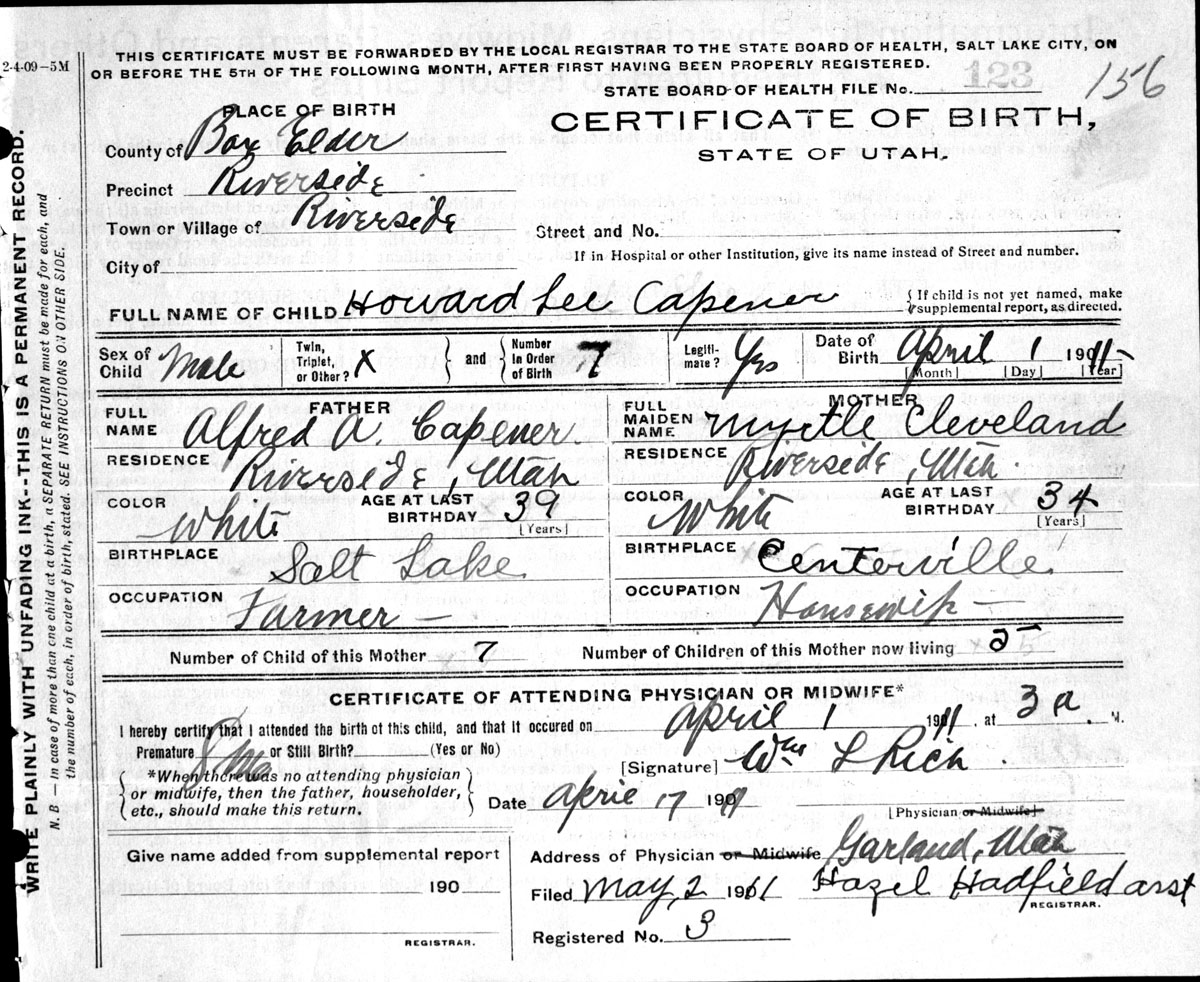 THIS CERTIFICATE MUST BE FORWARDED BY THE LOCAL REGISTRAR TO THE STATE BOARD OF HEALTH, SALT LAKE CITY, ON
2-4-09-5M
OR BEFORE THE 5TH OF THE FOLLOWING MONTH, AFTER FIRST HAVING BEEN PROPERLY REGISTERED.
STATE BOARD OF HEALTH FILE No. 123
156
PLACE OF BIRTH
CERTIFICATE OF BIRTH,
STATE OF UTAH.
County of Box Elder
Precinct Riverside
Town or Village of Riverside
Street and No.
City of
If in Hospital or other Institution, give its name instead of Street and number.
FULL NAME OF CHILD Howard Lee Capener
{ If child is not yet named, make
supplemental report, as directed.
Sex of Child Male
Twin, Triplet, or Other? X
and
Number In Order of Birth 7
Legiti-mate? Yes
Date of Birth April 1 1911
[Month] [Day] [Year]
FATHER
FULL NAME Alfred A. Capener
RESIDENCE Riverside, Utah
COLOR White
AGE AT LAST BIRTHDAY 39
[Years]
BIRTHPLACE Salt Lake
OCCUPATION Farmer —
MOTHER
FULL MAIDEN NAME Myrtle Cleveland
RESIDENCE Riverside, Utah.
COLOR White
AGE AT LAST BIRTHDAY 34
[Years]
BIRTHPLACE Centerville
OCCUPATION Housewife —
Number of Child of this Mother 7
Number of Children of this Mother now living
CERTIFICATE OF ATTENDING PHYSICIAN OR MIDWIFE*
I hereby certify that I attended the birth of this child, and that it occured on April 1 1911, at 3 a. M.
Premature or Still Birth? (Yes or No)
[Signature] Wm L Rich.
{ *When there was no attending physician
or midwife, then the father, householder,
etc., should make this return. }
Date April 17 19
[Physician or Midwife]
Give name added from supplemental report
190
REGISTRAR.
Address of Physician or Midwife Garland, Utah
Filed May, 2 1911 Hazel Hadfield asst
REGISTRAR.
Registered No. 3
WRITE PLAINLY WITH UNFADING INK--THIS IS A PERMANENT RECORD.
N. B. — in case of more than one child at a birth, a SEPARATE RETURN must be made for each, and
the number of each, in order of birth, stated. SEE INSTRUCTIONS ON OTHER SIDE.